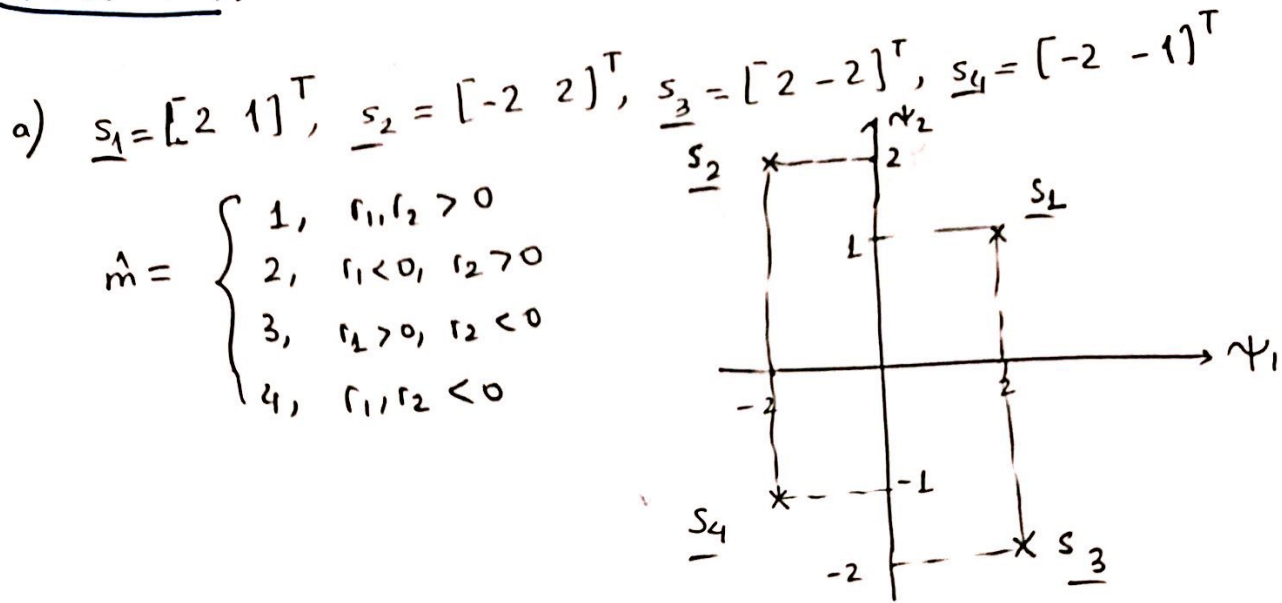 a) s₁ = [2 1]ᵀ, s₂ = [-2 2]ᵀ, s₃ = [2 -2]ᵀ, s₄ = [-2 -1]ᵀ
m̂ = {
1, r₁, r₂ > 0
2, r₁ < 0, r₂ > 0
3, r₁ > 0, r₂ < 0
4, r₁, r₂ < 0
ψ₂
s₂
2
s₁
1
ψ₁
-2
2
-1
s₄
-2
s₃